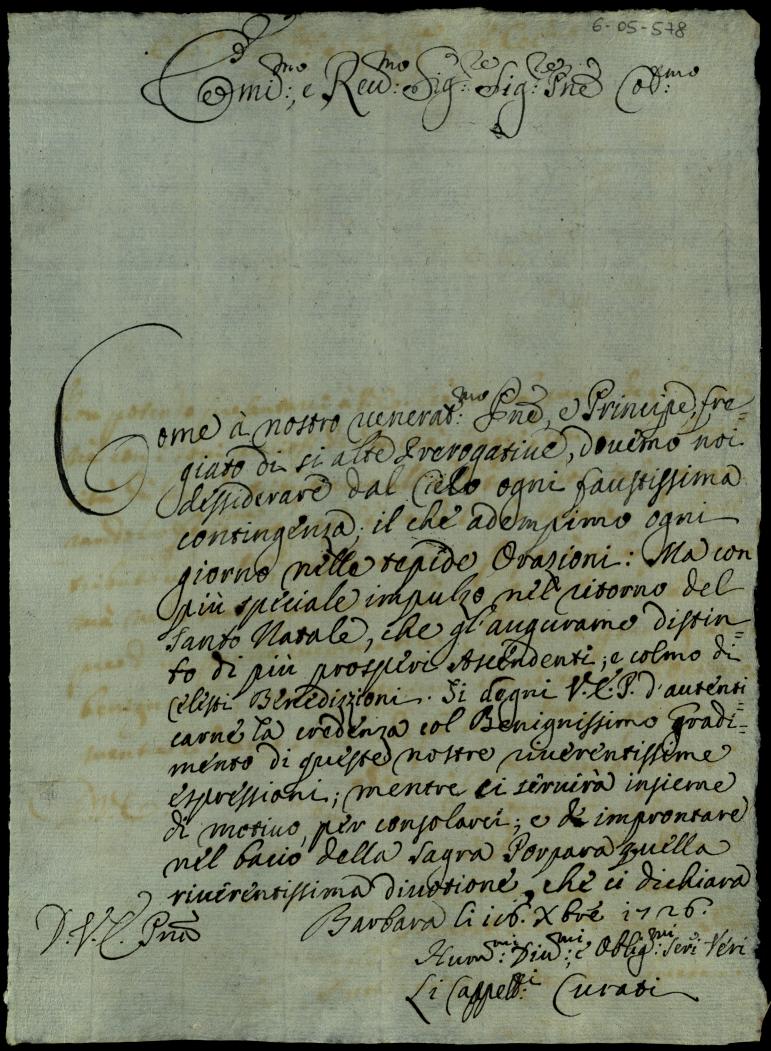 6-05-578
Em:mo, e Reu:mo Sig:re Sig:re Pne Col:mo
Come à nostro uenerat:mo Pne, e Principe, fre=
giato di si alte Prerogatiue, douemo noi
dessiderare dal Cielo ogni faustissima
contingenza; il che adempimo ogni
giorno nelle tepide Orazioni: Ma con
più speciale impulzo nel ritorno del
Santo Natale, che gl'auguramo distin=
to di più prosperi Ascendenti; e colmo di
Celesti Benedizzioni. Si degni V.E.P. d'autenti
carne la credenza col Benignissimo Gradi=
mento di queste nostre riuerentissime
espressioni; mentre ci seruirà insieme
di motiuo, per consolarci; e di improntare
nel bacio della Sagra Porpara quella
riuerentissima diuotione, che ci dichiara
D.V.E. Pna Barbara li 16. Xbre 1726.
Hum:mi Diu:mi, e Oblig:mi Seri Veri
Li Cappell:i Curati